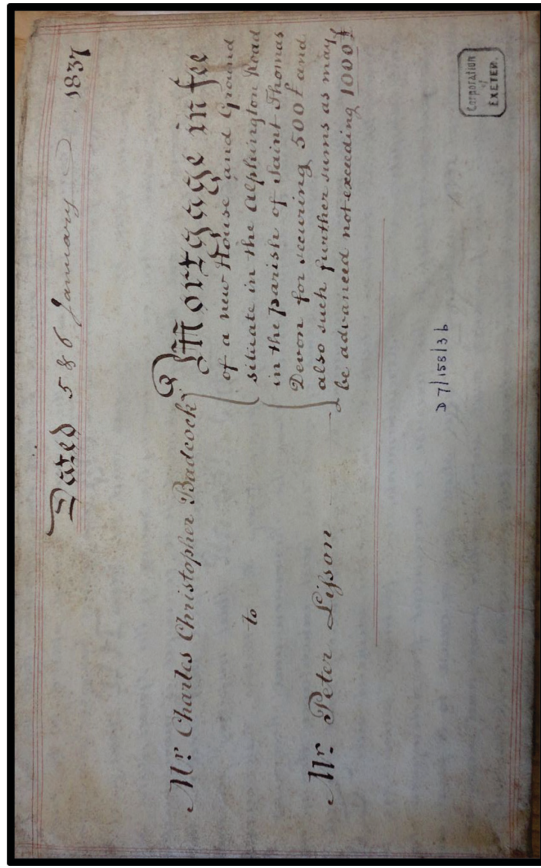 Dated 5 & 6 January 1837
Mr. Charles Christopher Badcock
to
Mr. Peter Lisson
Mortgage in fee
of a new House and Ground
situate in the Alphington Road
in the parish of Saint Thomas
Devon for securing 500£ and
also such further sums as may
be advanced not exceeding 1000£
D7/158/3b
Corporation
of
EXETER.